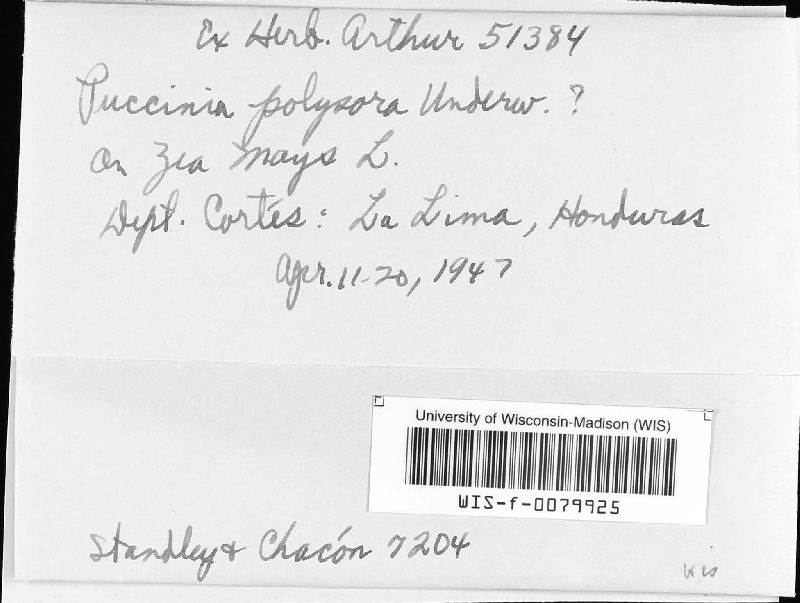 Ex Herb. Arthur 51384
Puccinia polysora Underw. ?
on Zea Mays L.
Dept. Cortés: La Lima, Honduras
Apr. 11-20, 1947
University of Wisconsin-Madison (WIS)
WIS-f-0079925
Standley & Chacón 7204
WIS